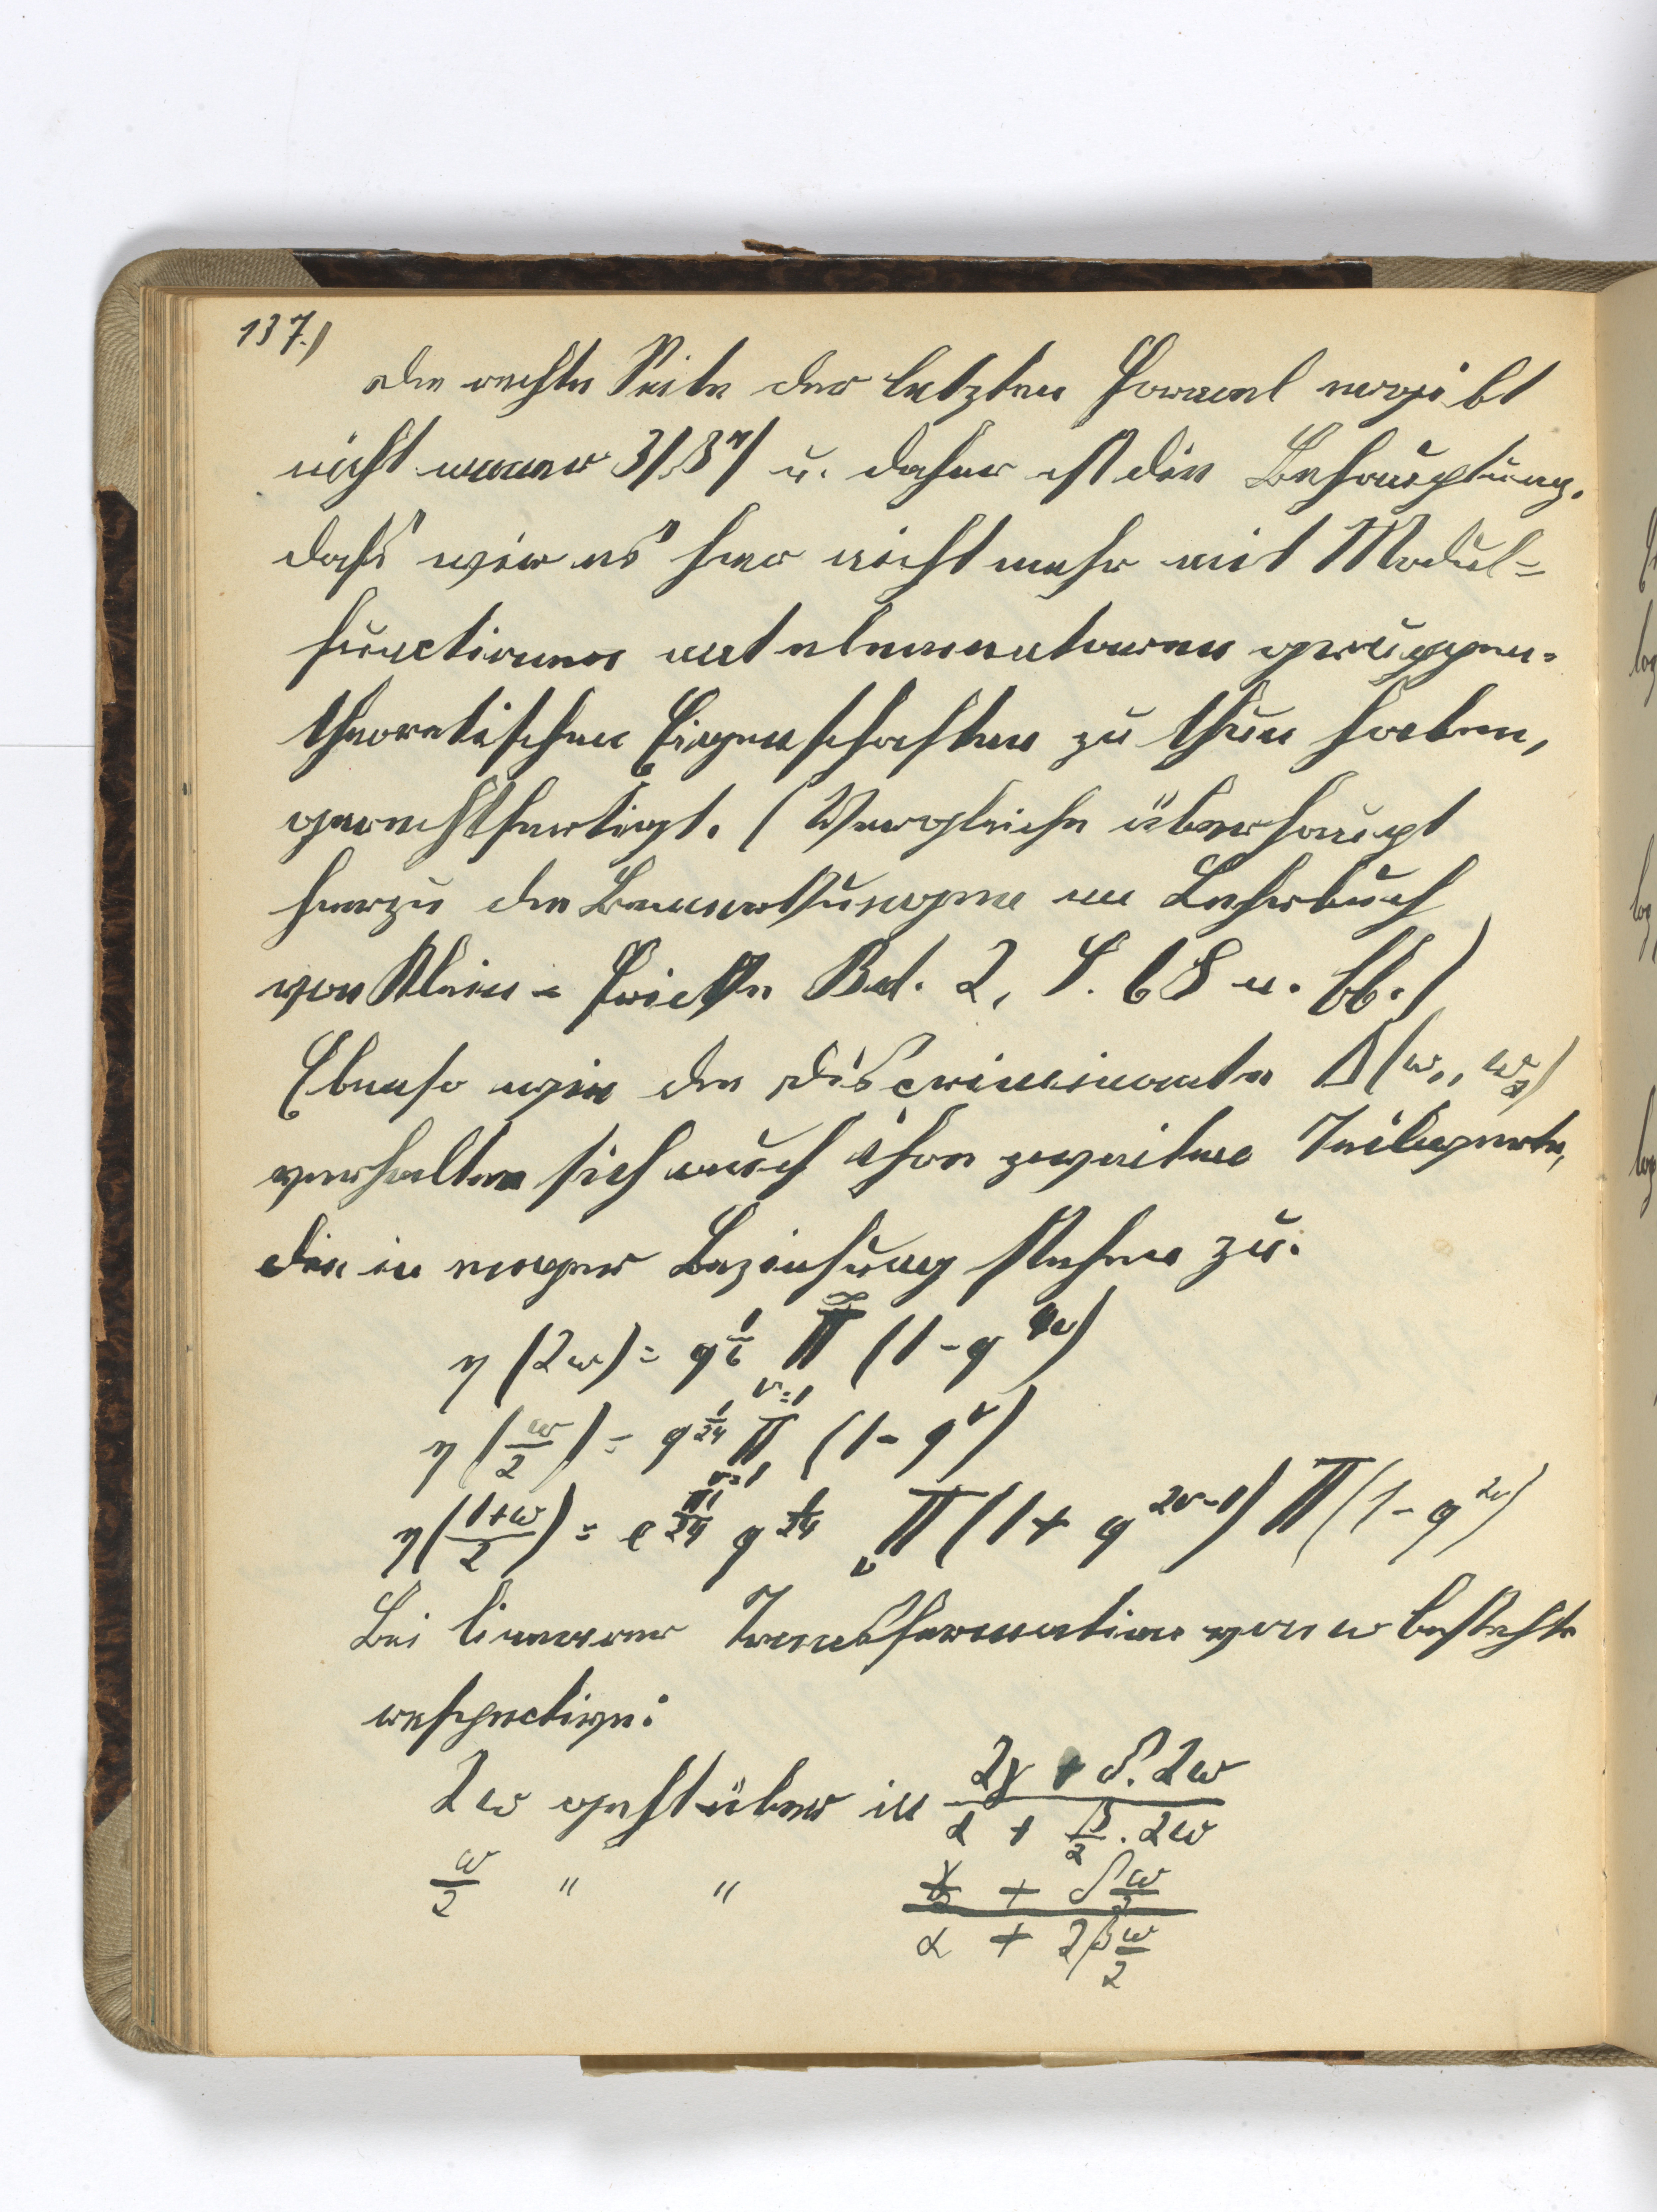 137.)
Die rechte Seite der letzten Formel ergibt
nicht immer 3/8 u. daher ist die Behauptung,
daß wir es hier nicht mehr mit Modul=
functionen mit elementaren gruppen-
theoretischen Eigenschaften zu thun haben,
gerechtfertigt. (Vergleiche überhaupt
hierzu die Bemerkungen im Lehrbuch
von Klein = Fricke Bd. 2, S. 68 u. ff.)
Ebenso wie die Discriminante Δ(ω₁, ω₂)
verhalten sich auch ihre zweiten Teilwerte,
die in enger Beziehung stehen zu:
η(2ω) = q^{1/6} ∏_{ν=1}^{∞} (1 - q^{4ν})
η(ω/2) = q^{1/24} ∏_{ν=1} (1 - q^ν)
η((1+ω)/2) = e^{πi/24} q^{1/24} ∏_ν (1 + q^{2ν-1}) ∏ (1 - q^{2ν})
Bei linearer Transformation von ω besteht
respective:
2ω geht über in (2γ + δ.2ω)/(α + β/2 . 2ω)
ω/2 " " (γ/2 + δ ω/2)/(α + 2β ω/2)